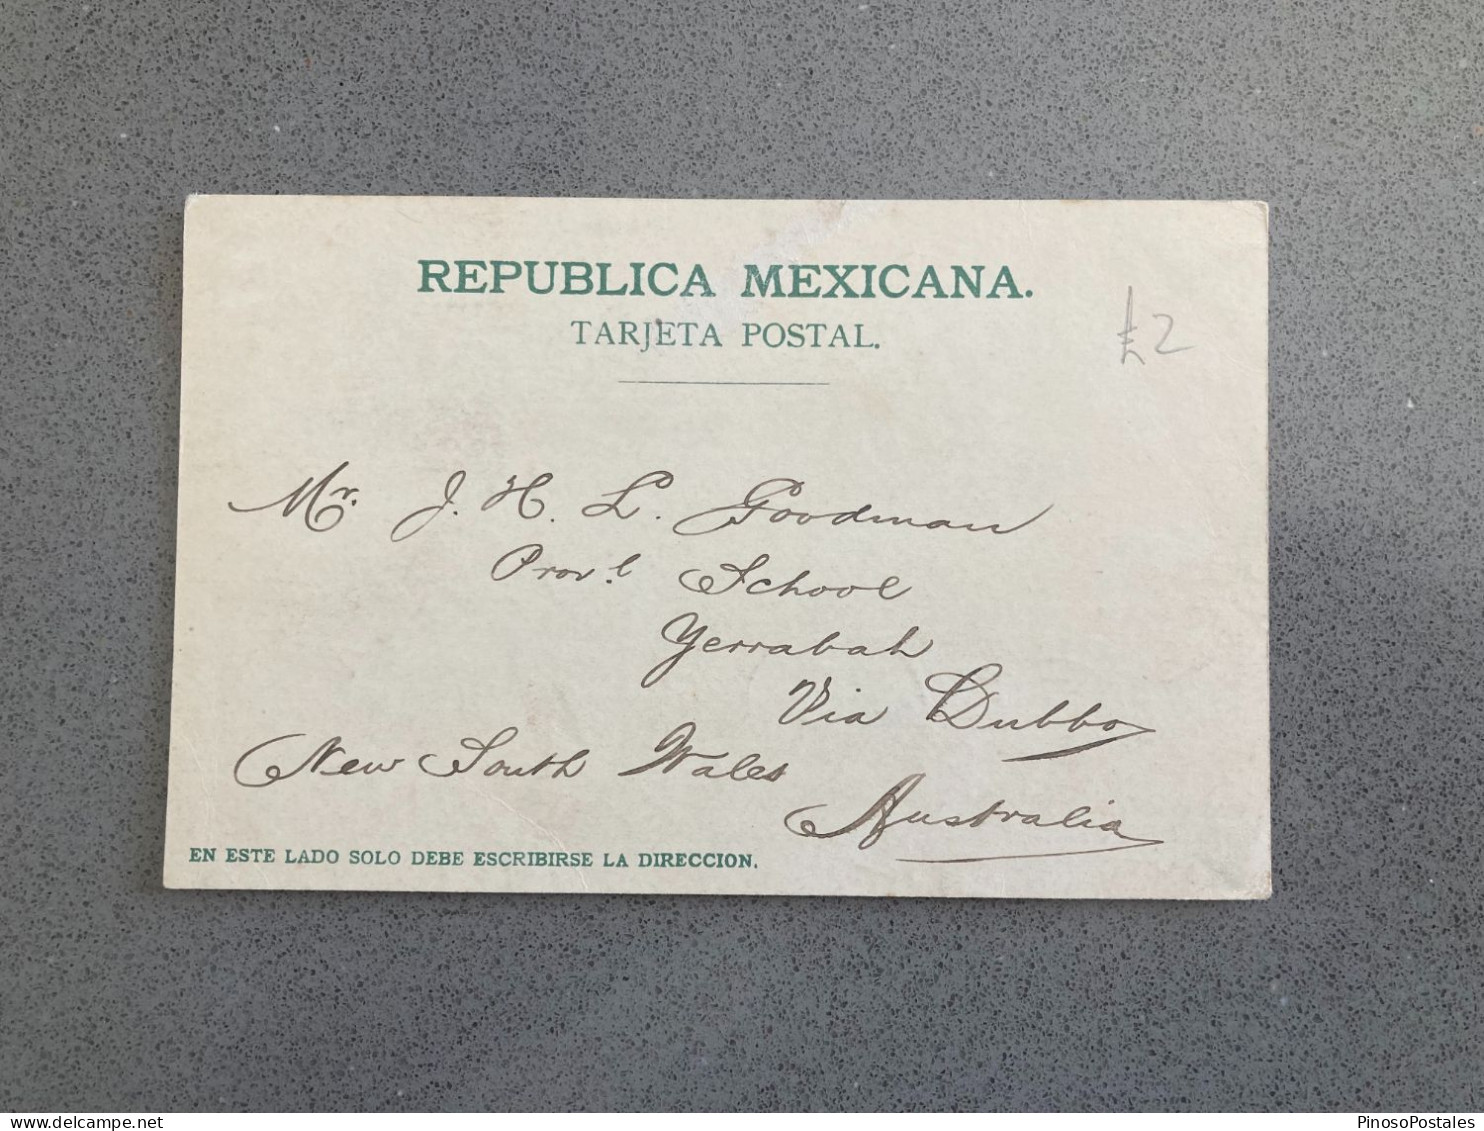 REPUBLICA MEXICANA.
TARJETA POSTAL.
£2
Mr. J. H. L. Goodman
Prov.l School
Yerrabah
Via Dubbo
New South Wales
Australia
EN ESTE LADO SOLO DEBE ESCRIBIRSE LA DIRECCION.
delcampe.net
PinosoPostales